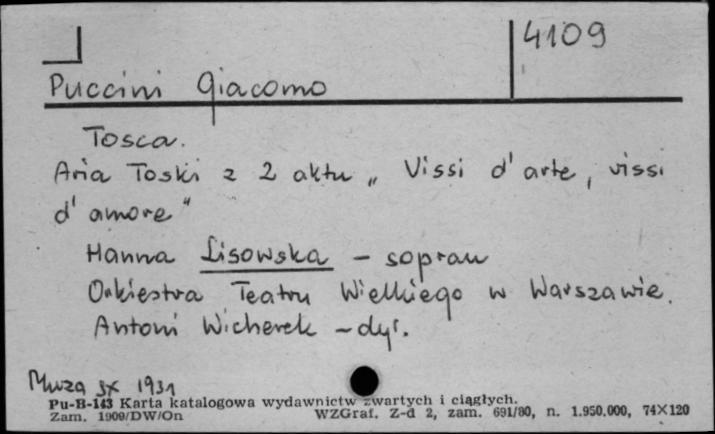 4109
Puccini Giacomo
Tosca.
Aria Toski z 2 aktu „ Vissi d'arte, vissi
d'amore"
Hanna Lisowska - sopran
Orkiestra Teatru Wielkiego w Warszawie.
Antoni Wicherek - dyr.
Muza SX 1931
Pu-B-143 Karta katalogowa wydawnictw zwartych i ciągłych.
Zam. 1909/DW/On WZGraf. Z-d 2, zam. 691/80, n. 1.950.000, 74X120